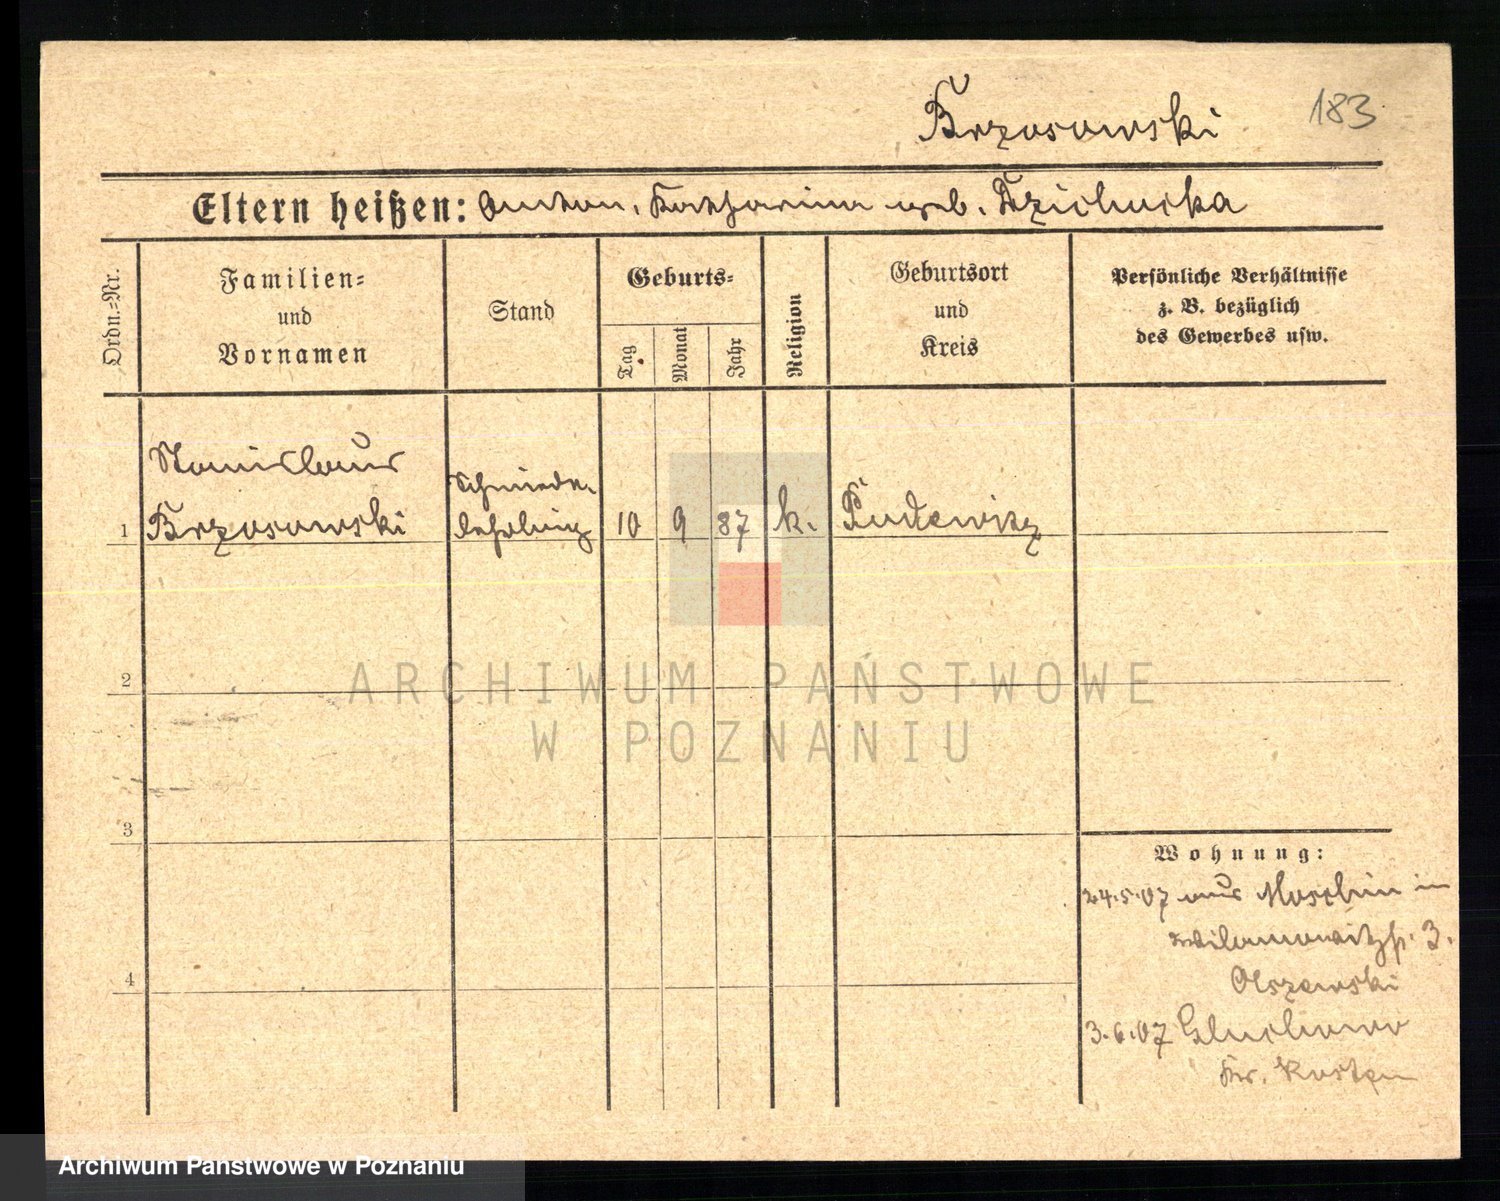 Brzosowski 183
Eltern heißen: Anton, Katharina geb. Dzichucka
Ordn.-Nr.
Familien-
und
Vornamen
Stand
Geburts-
Tag
Monat
Jahr
Religion
Geburtsort
und
Kreis
Persönliche Verhältnisse
z. B. bezüglich
des Gewerbes usw.
Stanislaus
Schmiede-
1 Brzosowski lehrling 10 9 87 k. Pudewitz
2
ARCHIWUM PAŃSTWOWE
W POZNANIU
3
Wohnung:
24.5.07 aus Moschin in
Wilamowitzstr. 3.
4
Olszewski
3.6.07 Gluchowo
Kr. Kosten
Archiwum Państwowe w Poznaniu